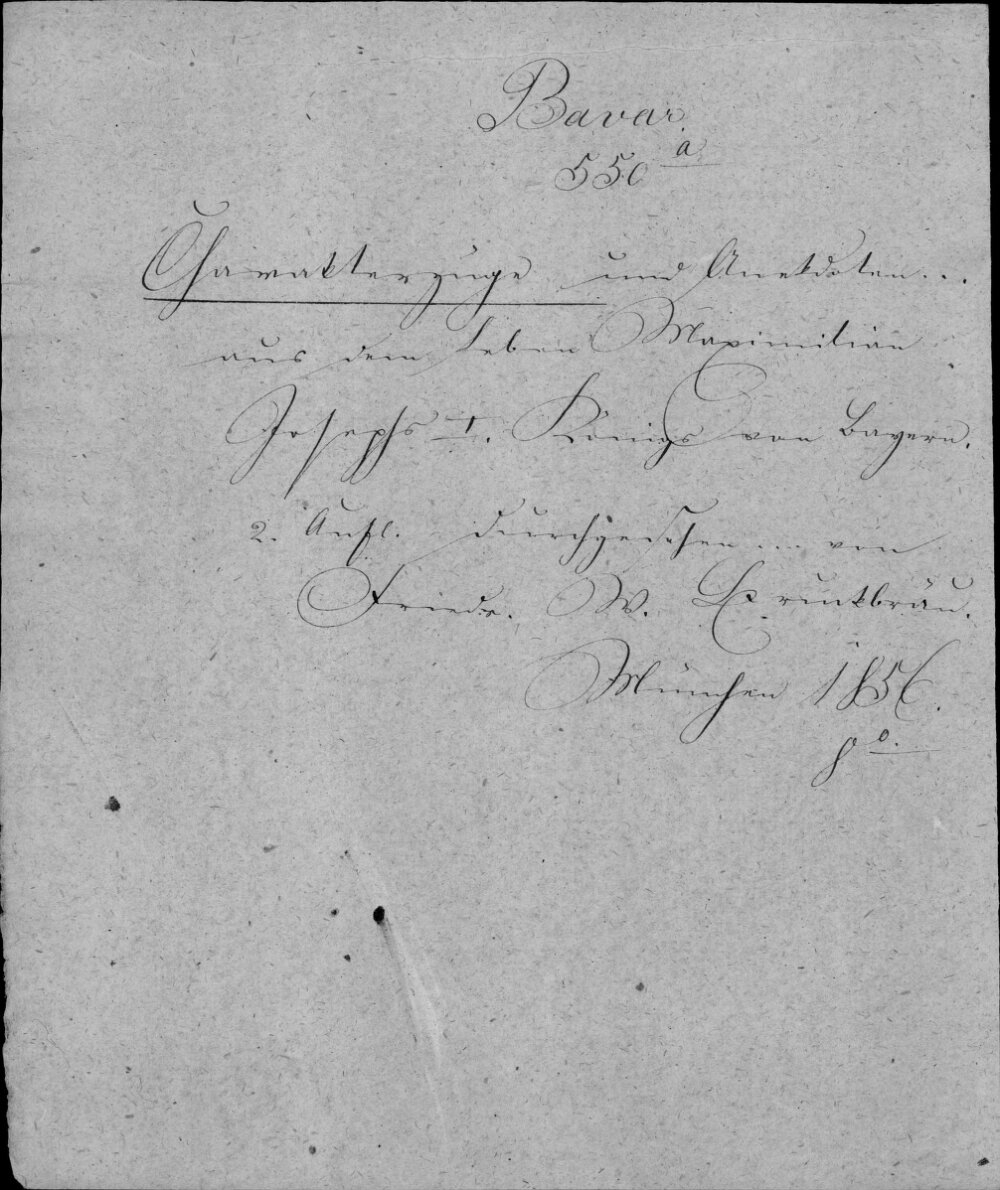 Bavar.
550 a
Charakterzüge und Anekdoten...
aus dem Leben Maximilian
Josephs I. Königs von Bayern.
2. Aufl. durchgesehen ... von
Friedr. W. Bruckbräu.
München 1856.
8o.